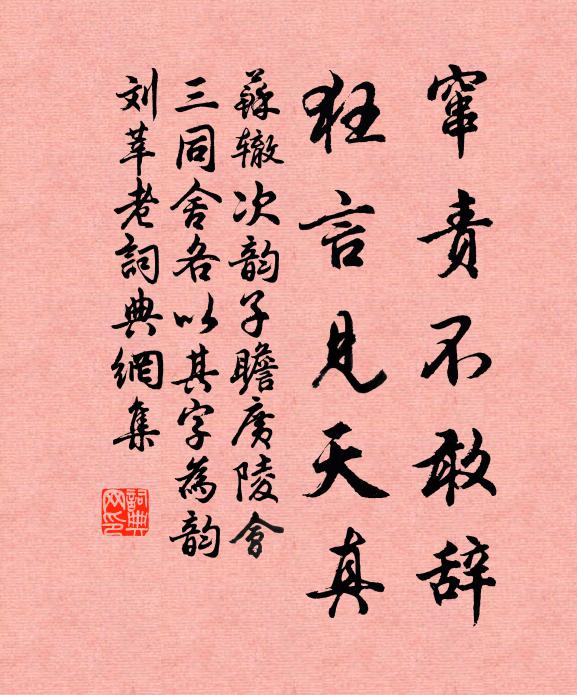 窜责不敢辞
狂言见天真
蘇辙次韵子瞻廣陵會
三同舍各以其字為韵
刘莘老詞典網集
詞典网印